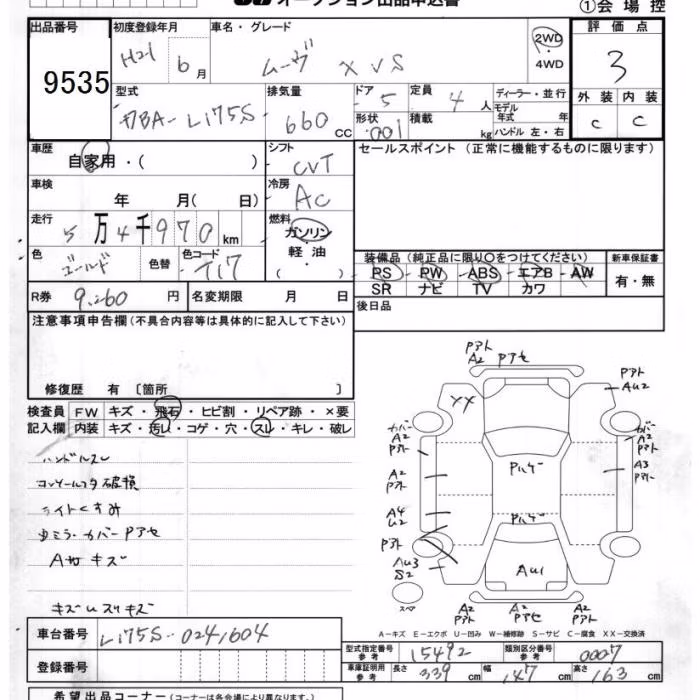 オークション出品申込書
①会場控
出品番号
9535
初度登録年月
H21 6月
車名・グレード
ムーヴ X VS
2WD
4WD
評価点
3
外装 内装
C C
型式
DBA-L175S
排気量
660 CC
ドア 5
形状 001
定員 4人
積載 kg
ディーラー・並行
モデル年式 年
ハンドル 左・右
車歴
自家用・( )
シフト
CVT
セールスポイント(正常に機能するものに限ります)
車検
年 月( 日)
冷房
AC
走行
5万4千970km
燃料
ガソリン
軽油
( )
色
ゴールド
色替
色コード
T17
装備品(純正品に限り○をつけてください)
PS PW ABS エアB AW
SR ナビ TV カワ
新車保証書
有・無
R券 9,260円
名変期限 月 日
後日品
注意事項申告欄(不具合内容等は具体的に記入して下さい)
修復歴 有〔箇所 〕
検査員記入欄
FW キズ・飛石・ヒビ割・リペア跡・×要
内装 キズ・汚レ・コゲ・穴・スレ・キレ・破レ
ハンドルスレ
コンソールフタ破損
ライトくすみ
ミラーカバーPアセ
Aサカキズ
キズUスリキズ
Pアト
A2 Pアセ
Pアト
AU2
XX
カバー
A2
Pアト
カバー
A2
Pアト
Pハゲ
A2
Pアト
A3
Pアト
A4
U2
Pハゲ
Pアト
AU3
S2
AU1
スペア
A2
Pアト
A2
Pアセ
A2
Pアト
A-キズ E-エクボ U-凹み W-補修跡 S-サビ C-腐食 XX-交換済
車台番号
L175S-0241604
登録番号
型式指定番号 参考 15492
類別区分番号 参考 0007
車庫証明用 参考 長さ 339cm 幅 147cm 高さ 163cm
希望出品コーナー(コーナーは各会場により異なります。)